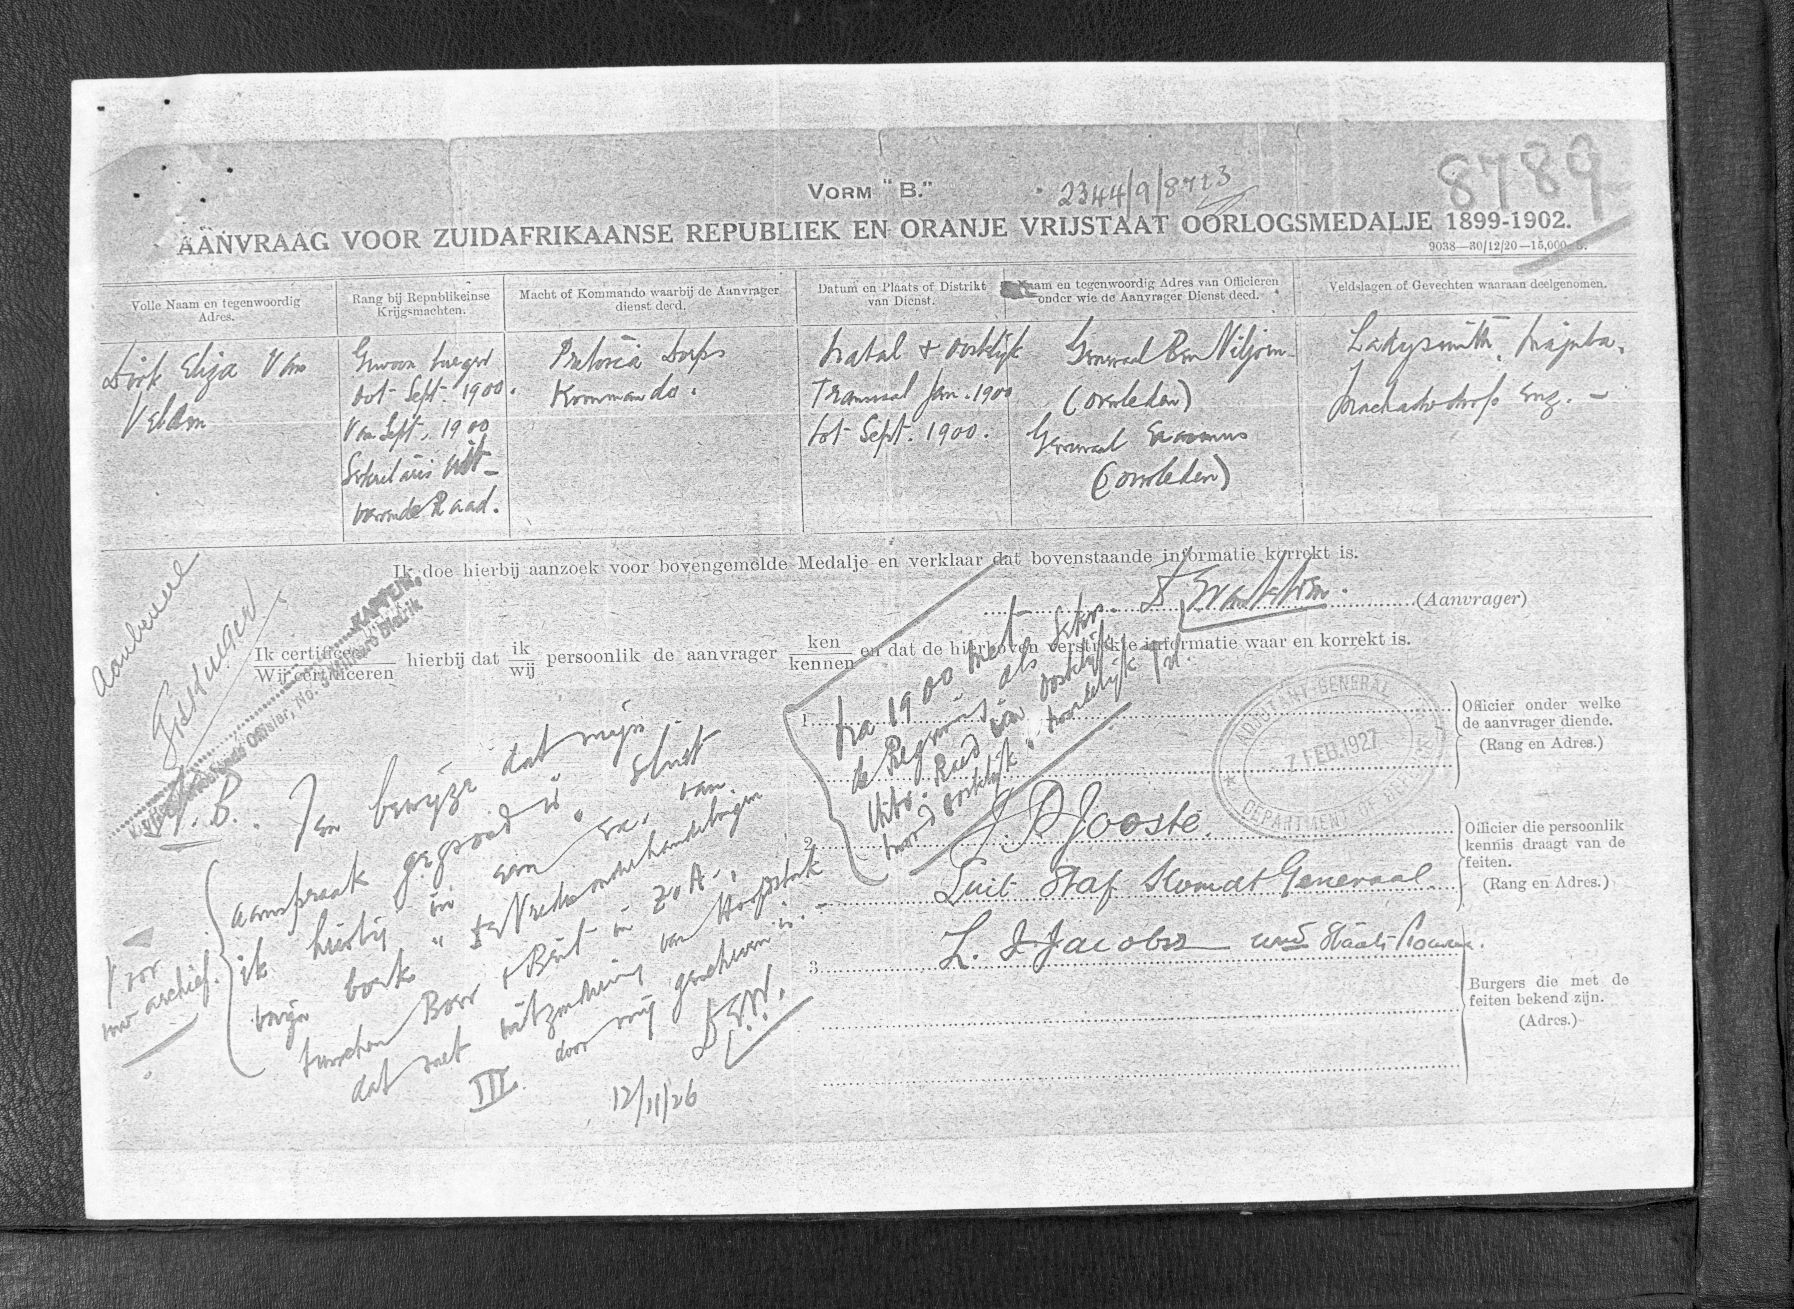 8789
VORM "B."
2344/9/8723
AANVRAAG VOOR ZUIDAFRIKAANSE REPUBLIEK EN ORANJE VRIJSTAAT OORLOGSMEDALJE 1899-1902.
9038—30/12/20—15,000
Volle Naam en tegenwoordig
Adres.
Rang bij Republikeinse
Krijgsmachten.
Macht of Kommando waarbij de Aanvrager
dienst deed.
Datum en Plaats of Distrikt
van Dienst.
Naam en tegenwoordig Adres van Officieren
onder wie de Aanvrager Dienst deed.
Veldslagen of Gevechten waaraan deelgenomen.
Dirk Eliza Van
Velden
Gewoon burger
tot Sept. 1900.
Van Sept. 1900
Sekretaris Uit-
voerende Raad.
Pretoria Dorps
Kommando.
Natal & Oostelijk
Transvaal Jan. 1900
tot Sept. 1900.
Generaal Ben Viljoen
(Overleden)
Generaal Erasmus
(Overleden)
Ladysmith, Majuba,
Machadodorp enz. -
Ik doe hierbij aanzoek voor bovengemelde Medalje en verklaar dat bovenstaande informatie korrekt is.
(Aanvrager)
Ik certificeer
Wij certificeren
hierbij dat
ik
wij
persoonlik de aanvrager
ken
kennen
en dat de hierboven verstrekte informatie waar en korrekt is.
Aanbevole
Goedgekeur
KAPTEIN.
1.
Na 1900 met
de Regering als Sekr.
Uitv. Raad van Oostelijk
naar Noordelijk Tvl.
Officier onder welke
de aanvrager diende.
(Rang en Adres.)
ADJUTANT-GENERAL
7 FEB. 1927
DEPARTMENT OF DEFENCE
2.
J. P. Jooste.
Luit Staf Komdt Generaal
Officier die persoonlik
kennis draagt van de
feiten.
(Rang en Adres.)
3.
L. J. Jacobsz
Burgers die met de
feiten bekend zijn.
(Adres.)
N.B. Ten bewijze dat mijn
aanspraak gegrond is, sluit
ik hierbij in een ex. van
mijn boek "De Vredesonderhandelingen
tusschen Boer & Brit in Z.A.",
dat met uitzondering van Hoofdstuk
III door mij geschreven is. -
D.E.V.V.
12/11/26
Voor
uw archief.